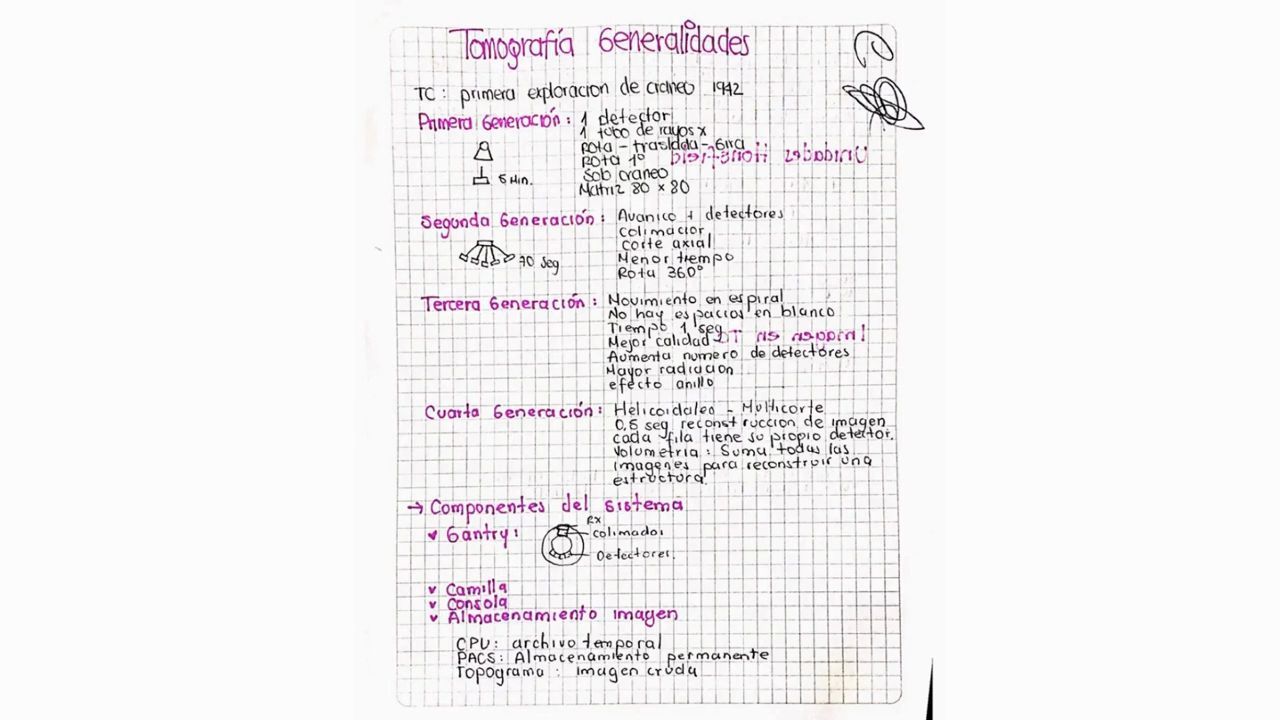 Tomografía Generalidades
TC: primera exploracion de craneo 1942
Primera Generación: 1 detector
1 tubo de rayos x
Rota - traslada - Gira
Rota 1°
Solo craneo
Matriz 80 x 80
5 Min.
Segunda Generación: Avanico + detectores
colimador
corte axial
Menor tiempo
Rota 360°
70 seg
Tercera Generación: Movimiento en espiral
No hay espacios en blanco
Tiempo 1 seg
Mejor calidad
Aumenta numero de detectores
Mayor radiacion
efecto anillo
Cuarta Generación: Helicoidales - Multicorte
0,5 seg reconstruccion de imagen
cada fila tiene su propio detector.
Volumetria: Suma todas las
imagenes para reconstruir una
estructura.
→ Componentes del sistema
Gantry:
Rx
Colimador
Detectores
Camilla
Consola
Almacenamiento imagen
CPU: archivo temporal
PACS: Almacenamiento permanente
Topograma: imagen cruda